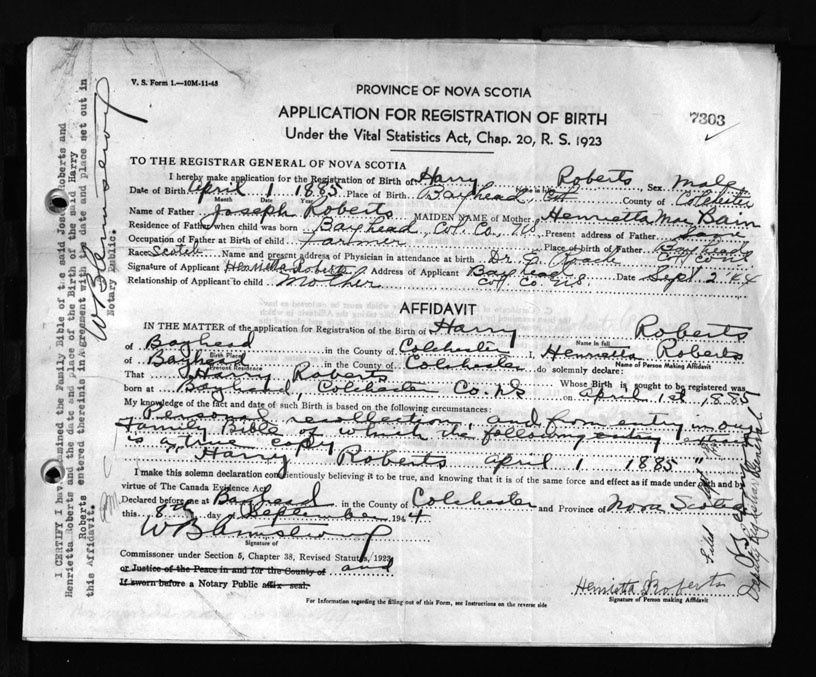 V. S. Form 1.—10M-11-43
PROVINCE OF NOVA SCOTIA
APPLICATION FOR REGISTRATION OF BIRTH
7303
Under the Vital Statistics Act, Chap. 20, R. S. 1923
TO THE REGISTRAR GENERAL OF NOVA SCOTIA
I hereby make application for the Registration of Birth of Harry Roberts Sex Male
Date of Birth April 1 1885 Place of Birth Bayhead, Col County of Colchester
Month Date Year
Name of Father Joseph Roberts MAIDEN NAME of Mother Henrietta MacBain
Residence of Father when child was born Bayhead, Col. Co., NS Present address of Father
Occupation of Father at Birth of child Farmer Place of birth of Father Bayhead
Race Scotch Name and present address of Physician in attendance at birth Dr. Col. Co. NS
Signature of Applicant Henrietta Roberts Address of Applicant Bayhead Date Sept 2 '44
Relationship of Applicant to child Mother Col. Co. NS.
AFFIDAVIT
IN THE MATTER of the application for Registration of the Birth of Harry Roberts
Name in full
of Bayhead in the County of Colchester I, Henrietta Roberts
Birth Place
Name of Person Making Affidavit
of Bayhead in the County of Colchester do solemnly declare:
Present Residence
That Harry Roberts Whose Birth is sought to be registered was
born at Bayhead, Colchester Co. NS on April 1st, 1885
My knowledge of the fact and date of such Birth is based on the following circumstances:
Personal recollection, and from entry in our
Family Bible of which the following entry
is a true copy
Harry Roberts April 1 1885"
I make this solemn declaration conscientiously believing it to be true, and knowing that it is of the same force and effect as if made under oath and by
virtue of The Canada Evidence Act.
Declared before me at Bayhead in the County of Colchester and Province of Nova Scotia
this 8th day of September 1944
W B Armstrong
Signature of
Commissioner under Section 5, Chapter 38, Revised Statutes, 1923
or Justice of the Peace in and for the County of and
If sworn before a Notary Public affix seal.
Henrietta Roberts
Signature of Person making Affidavit
For Information regarding the filling out of this Form, see Instructions on the reverse side
I CERTIFY I have examined the Family Bible of the said Joseph Roberts and
Henrietta Roberts and the date and place of the Birth of the said Harry
Roberts entered therein is in Agreement with the date and place set out in
this Affidavit.
W B Armstrong
Notary Public.
Filed Sept
Deputy Registrar General